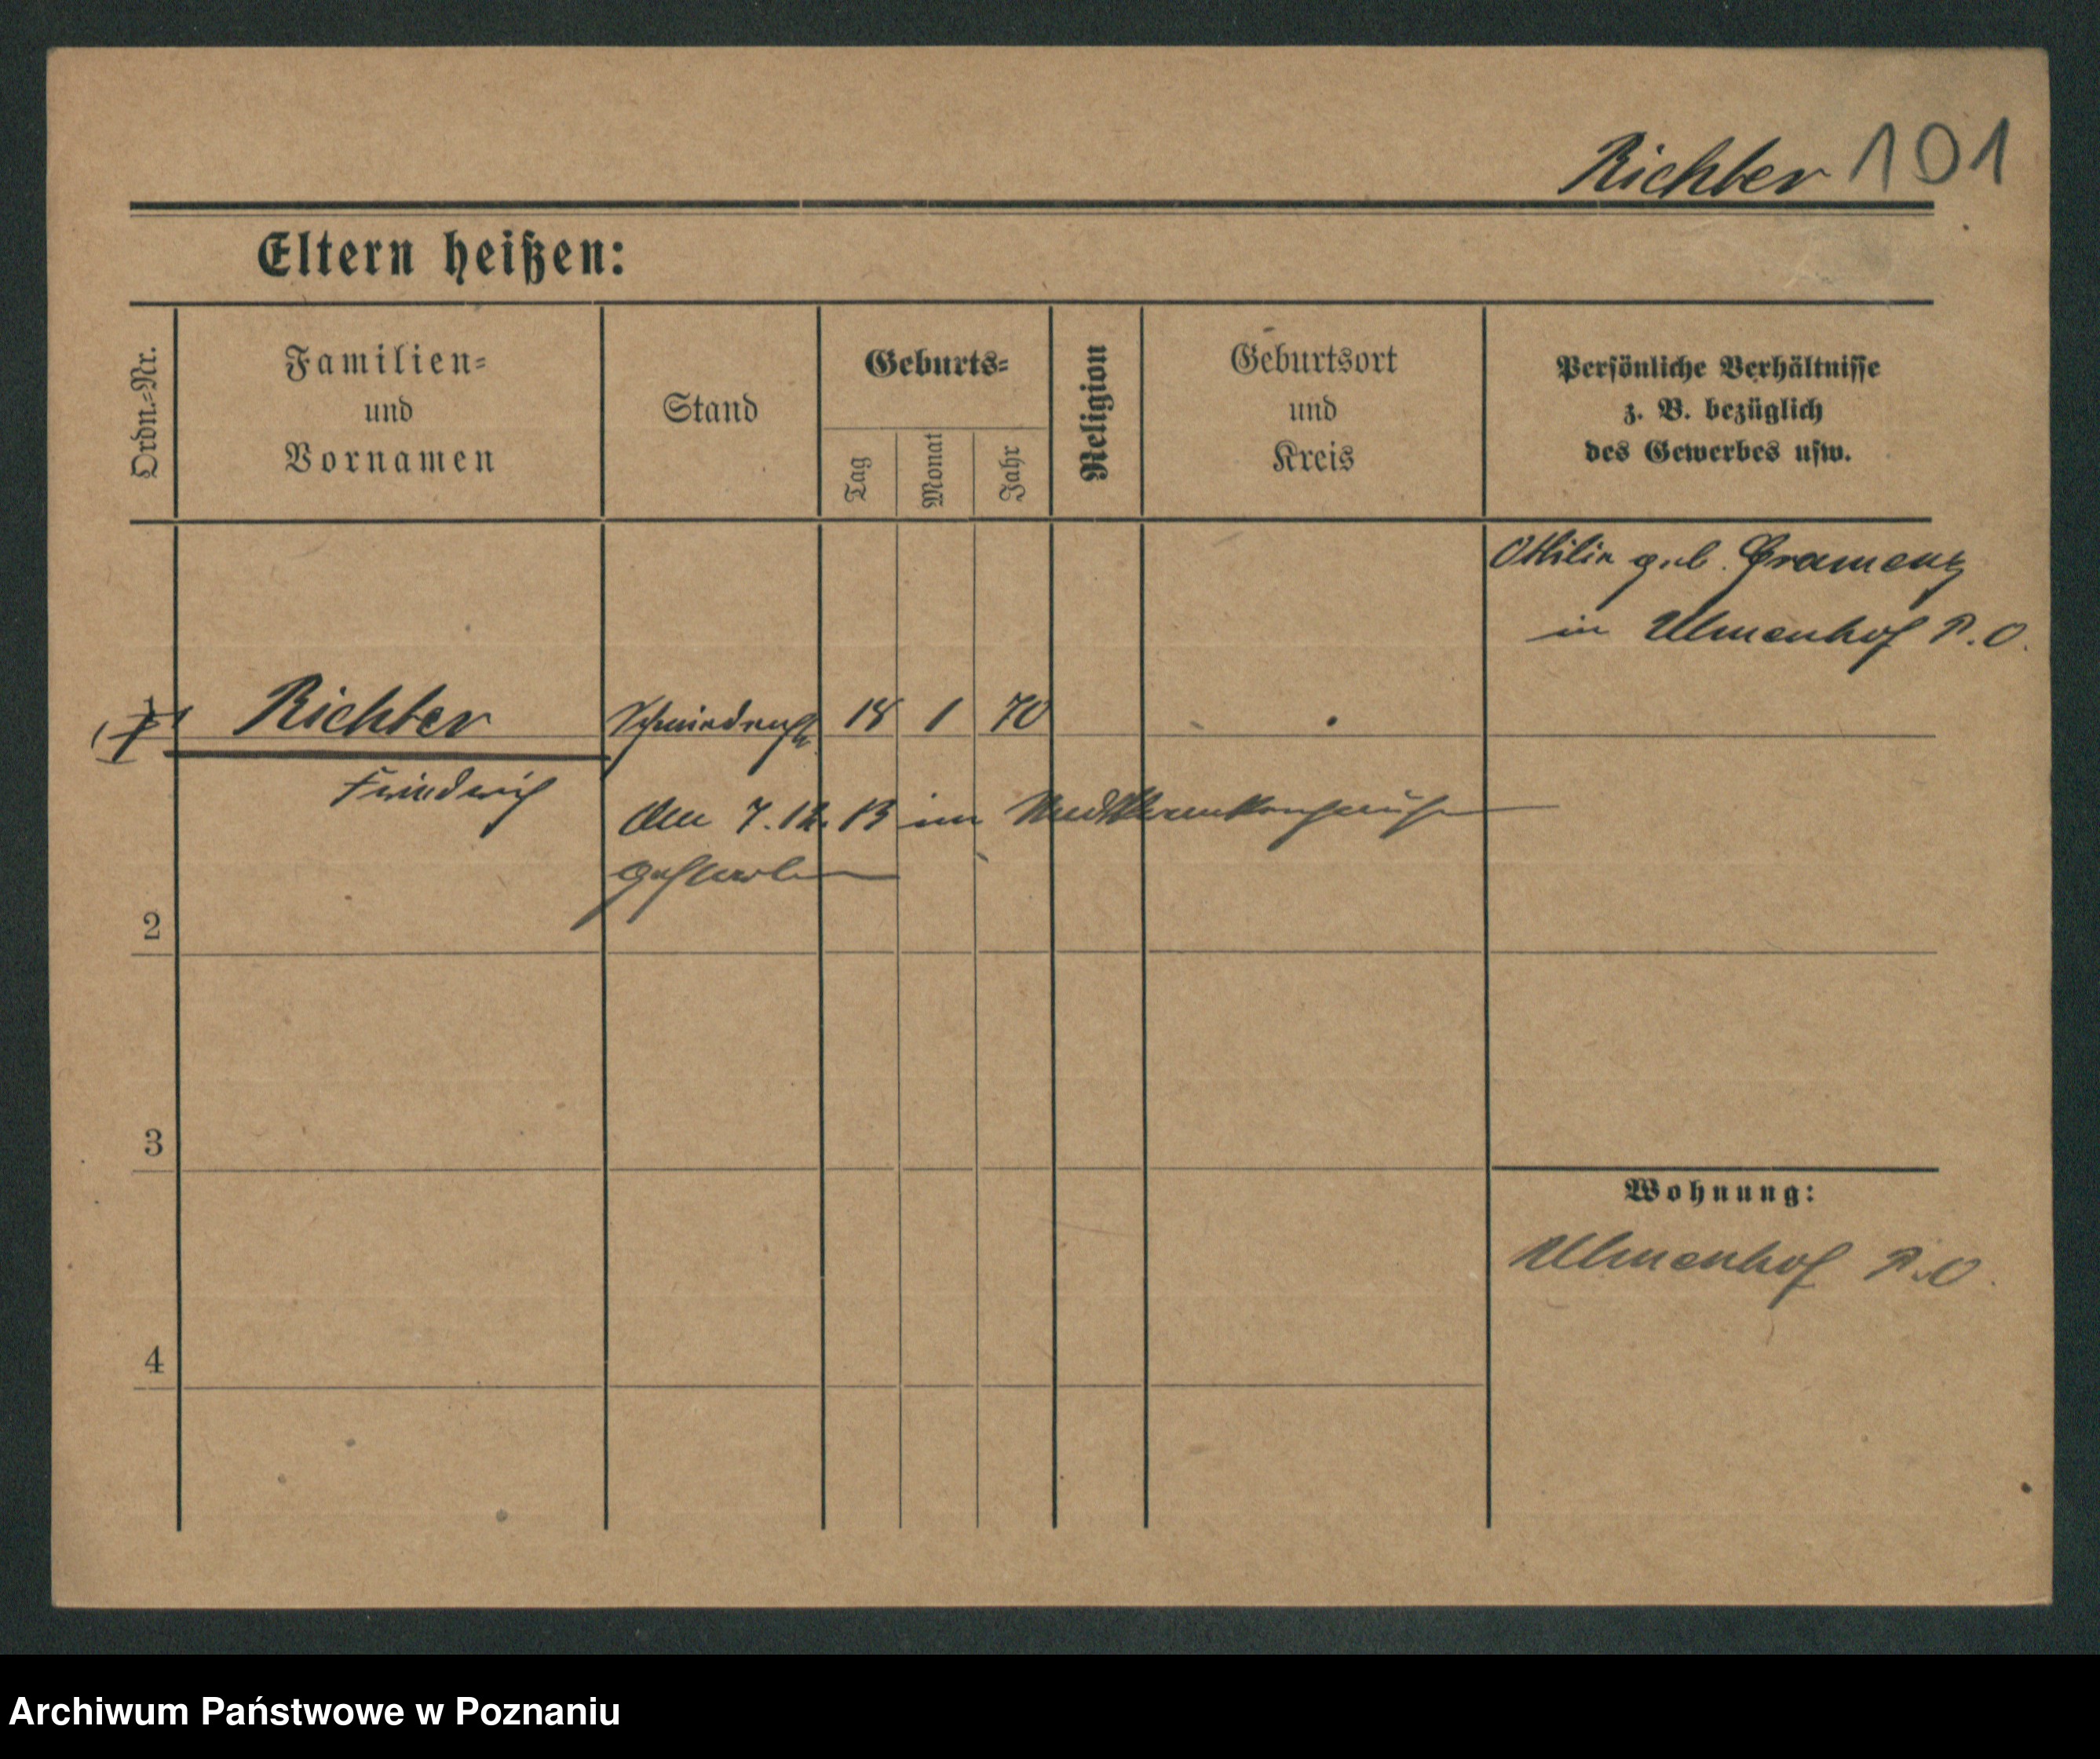 Richter 101
Eltern heißen:
Ordn.-Nr.
Familien-
und
Vornamen
Stand
Geburts-
Tag
Monat
Jahr
Religion
Geburtsort
und
Kreis
Persönliche Verhältnisse
z. B. bezüglich
des Gewerbes usw.
Ottilie geb. Gramenz
in Ulmenhof P.O.
1 Richter 18 1 70
Friedrich
Am 7.12.13 im Stadtkrankenhause
gestorben
2
3
Wohnung:
Ulmenhof P.O.
4
Archiwum Państwowe w Poznaniu